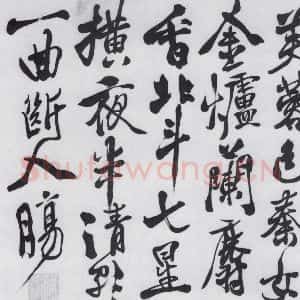 芙蓉色秦女
金爐蘭麝
香北斗七星
橫夜半清歌
一曲斷人腸
Shufawang.CN